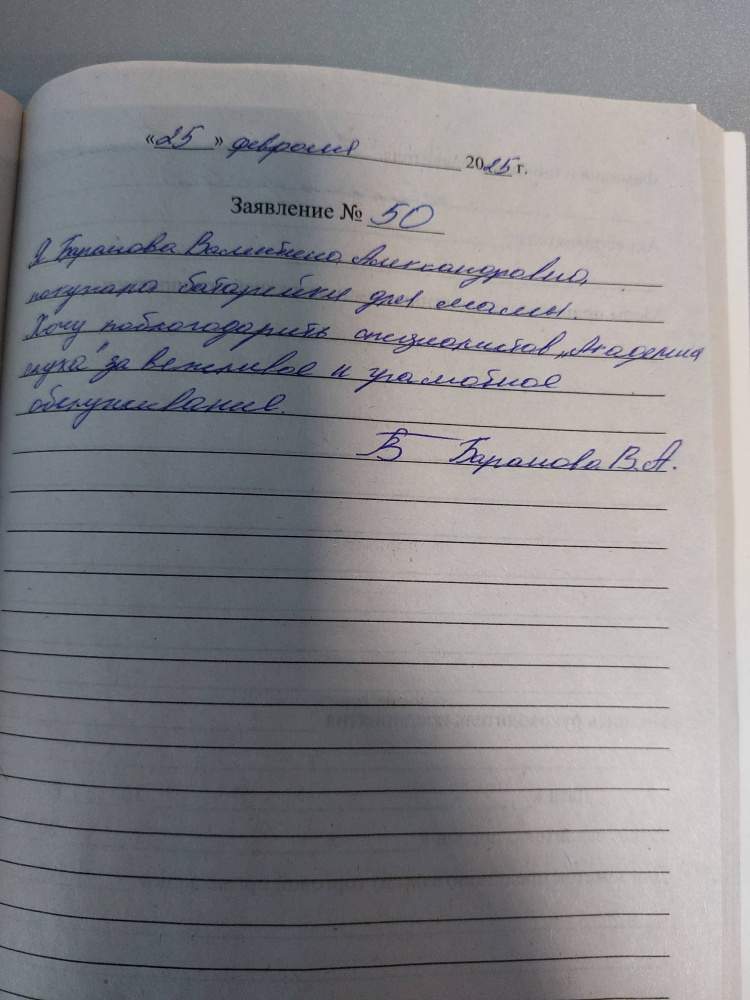 «25» февраля 2025 г.
Заявление № 50
Я Баранова Валентина Александровна,
покупала батарейки для мамы.
Хочу поблагодарить специалистов „Академия
слуха" за вежливое и грамотное
обслуживание.
В Баранова В.А.